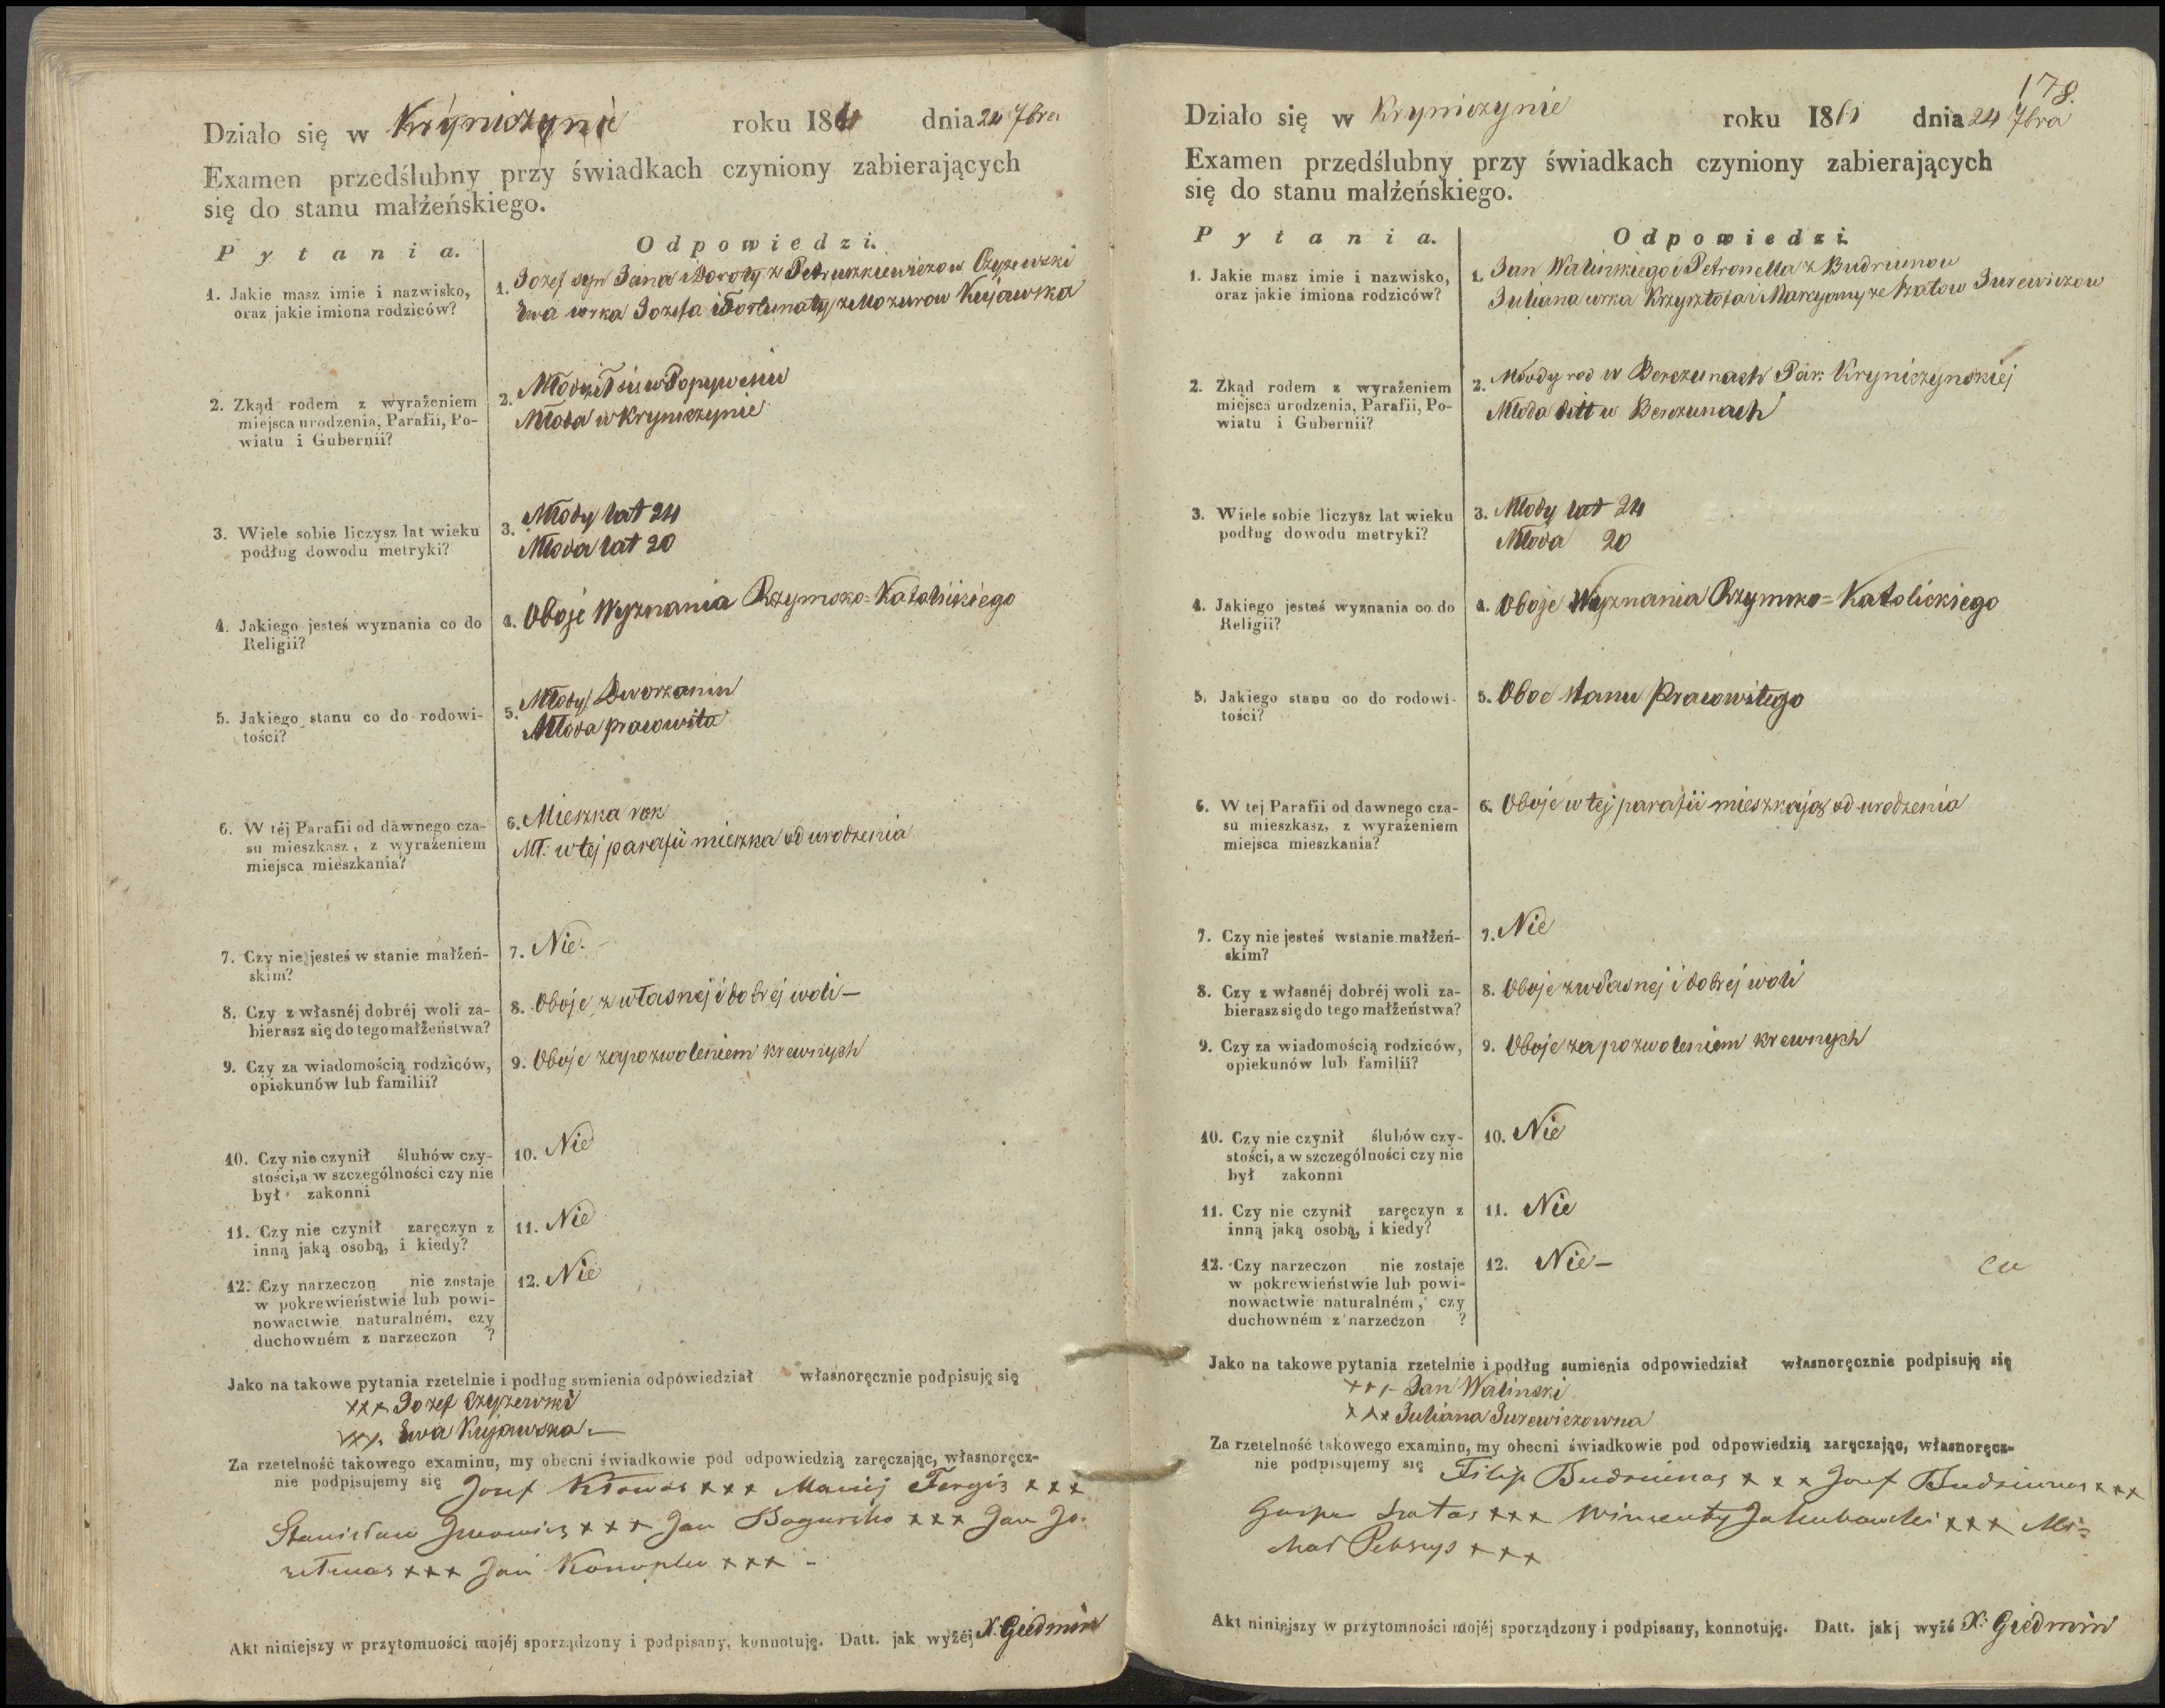 Działo się w Kryniczynie roku 1861 dnia 24 7bra
Examen przedślubny przy świadkach czyniony zabierających
się do stanu małżeńskiego.
Pytania.
Odpowiedzi.
1. Jakie masz imie i nazwisko,
oraz jakie imiona rodziców?
1. Jozef syn Jana i Doroty z Petruszkiewiczow Czyżewski
Ewa corka Jozefa i Fortunaty z Mozurow Kujawska
2. Zkąd rodem z wyrażeniem
miejsca urodzenia, Parafii, Po-
wiatu i Gubernii?
2. Młody
Młoda w Kryniczynie
3. Wiele sobie liczysz lat wieku
podług dowodu metryki?
3. Młody lat 24
Młoda lat 20
4. Jakiego jesteś wyznania co do
Religii?
4. Oboje Wyznania Rzymsko=Katolickiego
5. Jakiego stanu co do rodowi-
tości?
5. Młody Dworzanin
Młoda pracowita
6. W téj Parafii od dawnego cza-
su mieszkasz, z wyrażeniem
miejsca mieszkania?
6. Mieszka rok
Mł: w tej parafii mieszka od urodzenia
7. Czy nie jesteś w stanie małżeń-
skim?
7. Nie.
8. Czy z własnéj dobréj woli za-
bierasz się do tego małżeństwa?
8. Oboje z własnej i dobrej woli –
9. Czy za wiadomością rodziców,
opiekunów lub familii?
9. Oboje za pozwoleniem krewnych
10. Czy nie czynił ślubów czy-
stości, a w szczególności czy nie
był zakonni
10. Nie
11. Czy nie czynił zaręczyn z
inną jaką osobą, i kiedy?
11. Nie
12. Czy narzeczon nie zostaje
w pokrewieństwie lub powi-
nowactwie naturalném, czy
duchowném z narzeczon ?
12. Nie
Jako na takowe pytania rzetelnie i podług sumienia odpowiedział własnoręcznie podpisuję się
xxx Jozef Czyżewski
xxx. Ewa Kujawska. –
Za rzetelność takowego examinu, my obecni świadkowie pod odpowiedzią zaręczając, własnoręcz-
nie podpisujemy się Jozef xxx Maciej xxx
Stanisław xxx Jan xxx Jan
xxx Jan xxx –
Akt niniejszy w przytomności mojéj sporządzony i podpisany, konnotuję. Datt. jak wyżéj X. Giedmin
178.
Działo się w Kryniczynie roku 1861 dnia 24 7bra
Examen przedślubny przy świadkach czyniony zabierających
się do stanu małżeńskiego.
Pytania.
Odpowiedzi.
1. Jakie masz imie i nazwisko,
oraz jakie imiona rodziców?
1. Jan Walinskiego i Petronella z Budriunow
Juliana corka Krzysztofa i Marcyanny ze Szatow Jurewiczow
2. Zkąd rodem z wyrażeniem
miejsca urodzenia, Parafii, Po-
wiatu i Gubernii?
2. Młody rod w Berszunach Par: Kryniczynskiej
Młoda w Berszunach
3. Wiele sobie liczysz lat wieku
podług dowodu metryki?
3. Młody lat 24
Młoda 20
4. Jakiego jesteś wyznania co do
Religii?
4. Oboje Wyznania Rzymsko=Katolickiego
5. Jakiego stanu co do rodowi-
tości?
5. Oboe stanu Pracowitego
6. W tej Parafii od dawnego cza-
su mieszkasz, z wyrażeniem
miejsca mieszkania?
6. Oboje w tej parafii mieszkają od urodzenia
7. Czy nie jesteś wstanie małżeń-
skim?
7. Nie
8. Czy z własnéj dobréj woli za-
bierasz się do tego małżeństwa?
8. Oboje z własnej i dobrej woli
9. Czy za wiadomością rodziców,
opiekunów lub familii?
9. Oboje za pozwoleniem krewnych
10. Czy nie czynił ślubów czy-
stości, a w szczególności czy nie
był zakonni
10. Nie
11. Czy nie czynił zaręczyn z
inną jaką osobą, i kiedy?
11. Nie
12. Czy narzeczon nie zostaje
w pokrewieństwie lub powi-
nowactwie naturalném, czy
duchowném z narzeczon ?
12. Nie –
Jako na takowe pytania rzetelnie i podług sumienia odpowiedział własnoręcznie podpisuję się
xxx – Jan Walinski
xxx Juliana Jurewiczowna
Za rzetelność takowego examinu, my obecni świadkowie pod odpowiedzią zaręczając, własnoręcz-
nie podpisujemy się Filip Budriunas xxx Jozef Budriunas xxx
Gasper Szatas xxx Wincenty Jakubowski xxx Mi=
chał xxx
Akt niniejszy w przytomności mojéj sporządzony i podpisany, konnotuję. Datt. jakj wyżé X. Giedmin